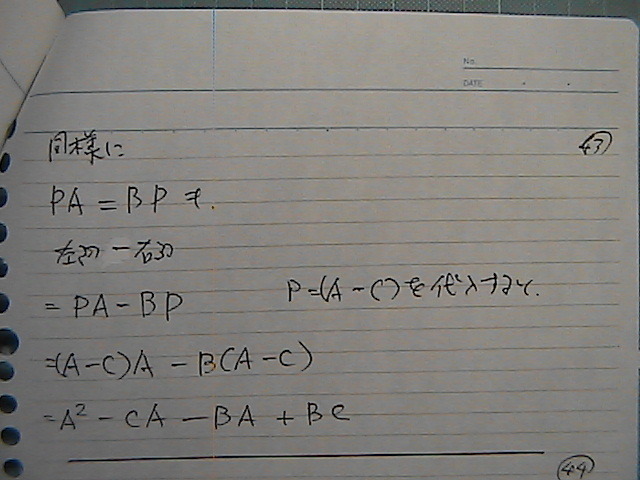 No.
DATE
同様に
43
PA = BP も.
左辺 − 右辺
= PA − BP
P=(A − C) を代入すると.
=(A−C)A − B(A−C)
=A² − CA − BA + BC
44